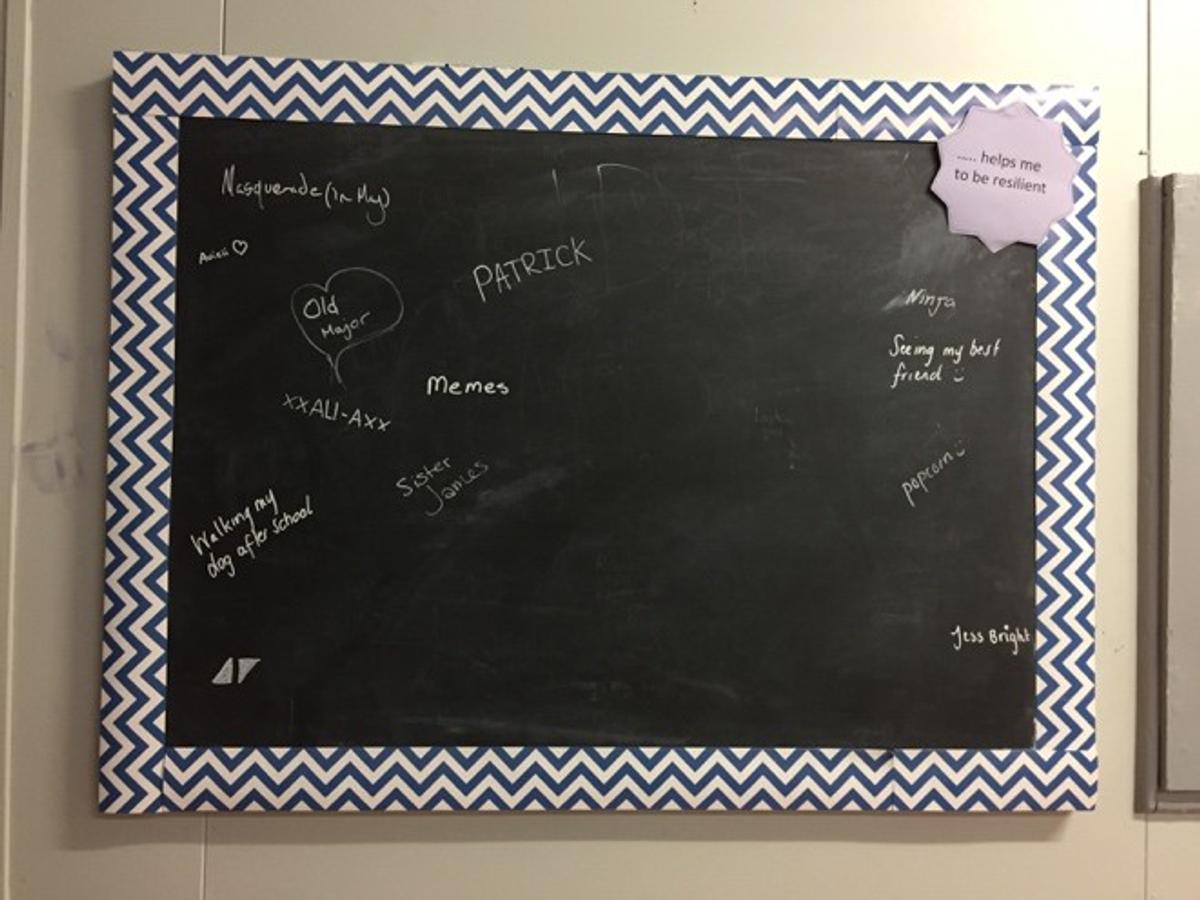 ..... helps me
to be resilient
Masquerade (in May)
PATRICK
Old
Major
Ninja
Seeing my best
friend
Memes
xxALI-Axx
Sister
James
popcorn
Walking my
dog after school
Jess Bright